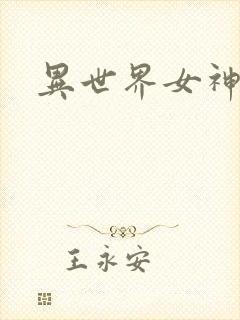 異世界女神
王永安